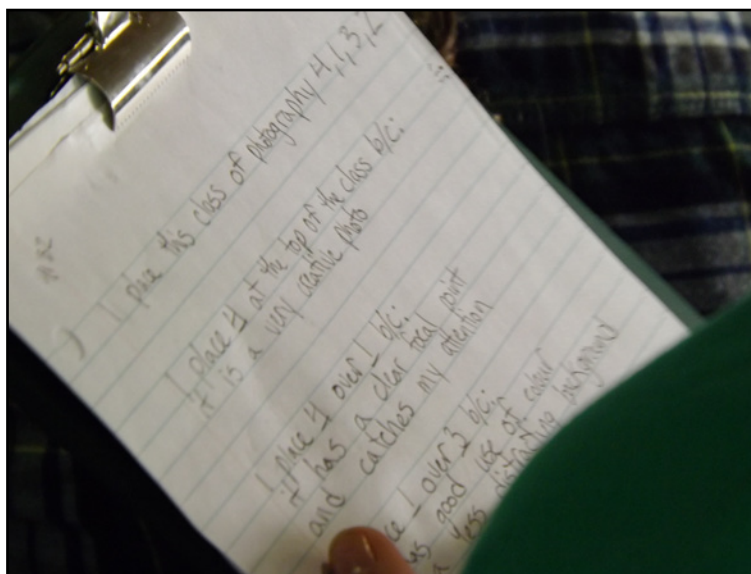 ) I place this class of photography 4,1,3,2
I place 4 at the top of the class b/c:
it is a very creative photo
I place 4 over 1 b/c:
it has a clear focal point
and catches my attention
ce 1 over 3 b/c:
as good use of colour
a less distracting background